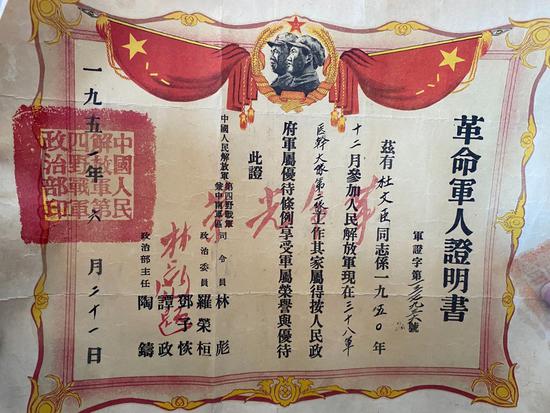 革命軍人證明書
軍證字第 號
茲有杜文臣同志係一九五〇年
十二月參加人民解放軍現在三十八軍
醫幹大隊第 隊工作其家屬得按人民政
府軍屬優待條例享受軍屬榮譽與優待
此證
光榮
中國人民解放軍第四野戰軍
暨中南軍區
司令員 林彪
政治委員 羅榮桓
鄧子恢
譚政
政治部主任 陶鑄
一九五一年六月二十一日
中國人民
解放軍第
四野戰軍
政治部印